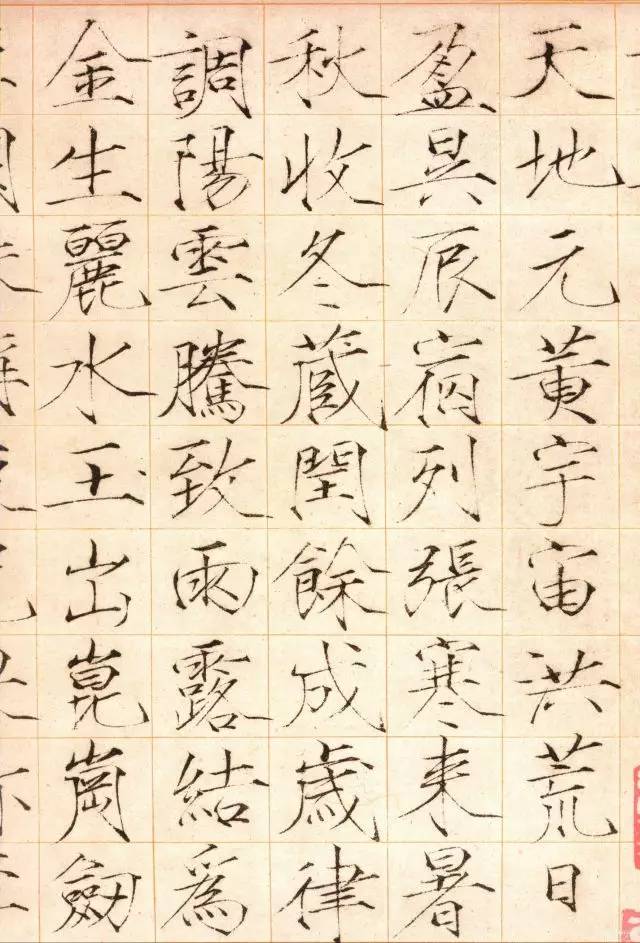 天地元黄宇宙洪荒日
盈昃辰宿列張寒来暑
秋收冬蔵閏餘成歲律
調陽雲騰致雨露結爲
金生麗水玉出崑崗劍